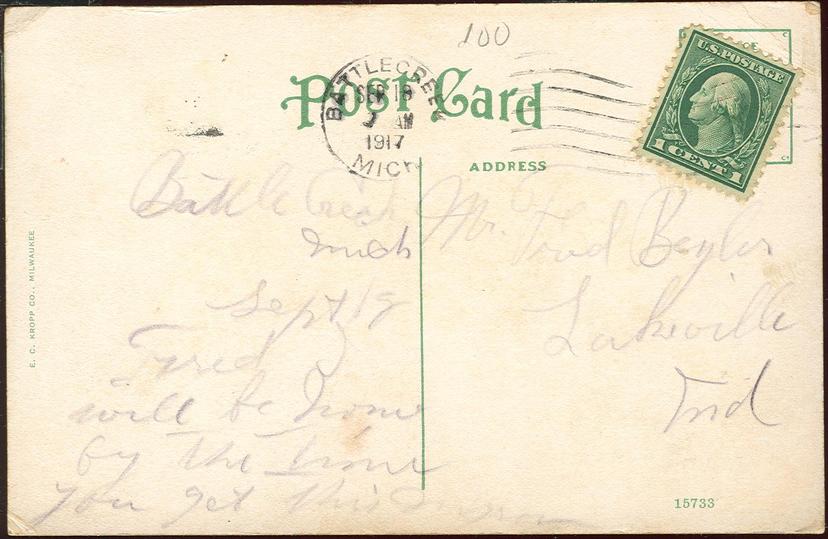 100
U.S. POSTAGE
1 CENT 1
Post Card
BATTLE CREEK
SEP 18
AM
1917
MICH.
ADDRESS
Battle Creek
Mich
Sept 18
Fred
will be home
by the time
you get this
Mr. Fred Beyler
Lakeville
Ind
E. C. KROPP CO., MILWAUKEE
15733